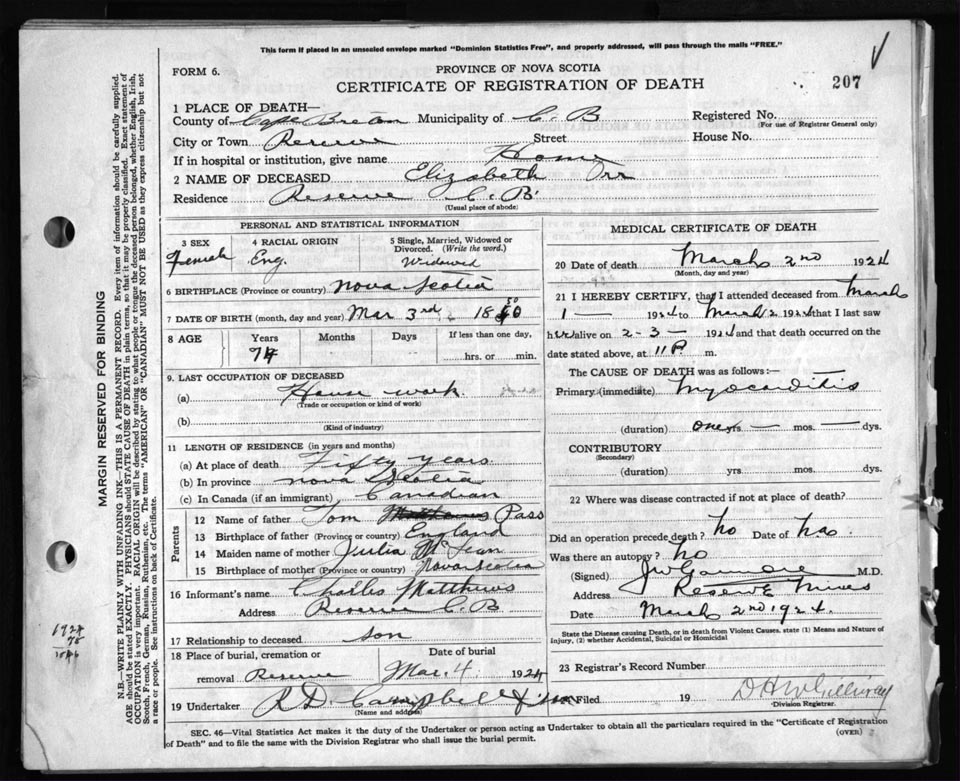 This form if placed in an unsealed envelope marked "Dominion Statistics Free", and properly addressed, will pass through the mails "FREE."
FORM 6.
PROVINCE OF NOVA SCOTIA
CERTIFICATE OF REGISTRATION OF DEATH
207
1 PLACE OF DEATH—
County of Cape Breton Municipality of C. B Registered No.
(For use of Registrar General only)
City or Town Reserve Street House No.
If in hospital or institution, give name Home
2 NAME OF DECEASED Elizabeth Orr
Residence Reserve C. B
(Usual place of abode)
PERSONAL AND STATISTICAL INFORMATION
3 SEX
Female
4 RACIAL ORIGIN
Eng.
5 Single, Married, Widowed or Divorced. (Write the word.)
Widowed
6 BIRTHPLACE (Province or country) Nova Scotia
7 DATE OF BIRTH (month, day and year) Mar 3rd 18 50
8 AGE
Years
74
Months
Days
If less than one day,
hrs. or min.
9. LAST OCCUPATION OF DECEASED
(a) House work.
(Trade or occupation or kind of work)
(b)
(Kind of industry)
11 LENGTH OF RESIDENCE (in years and months)
(a) At place of death Fifty years
(b) In province Nova Scotia
(c) In Canada (if an immigrant) Canadian
Parents
12 Name of father Tom Pass
13 Birthplace of father (Province or country) England
14 Maiden name of mother Julia McLean
15 Birthplace of mother (Province or country) Nova Scotia
16 Informant's name Charles Matthews
Address Reserve C. B
17 Relationship to deceased son
18 Place of burial, cremation or removal Reserve
Date of burial
Mar. 4 1924
19 Undertaker R D. Campbell
(Name and address)
MEDICAL CERTIFICATE OF DEATH
20 Date of death March 2nd 1924
(Month, day and year)
21 I HEREBY CERTIFY, that I attended deceased from March
1 — 1924 to March 2 1924 that I last saw
her alive on 2-3- 1924 and that death occurred on the
date stated above, at 11 P. m.
The CAUSE OF DEATH was as follows:—
Primary (immediate) Myocarditis
(duration) one yrs — mos. — dys.
CONTRIBUTORY
(Secondary)
(duration) yrs. mos. dys.
22 Where was disease contracted if not at place of death?
Did an operation precede death? no Date of
Was there an autopsy? No
(Signed) M.D.
Address Reserve Mines
Date March 2nd 1924.
State the Disease causing Death, or in death from Violent Causes, state (1) Means and Nature of
injury, (2) whether Accidental, Suicidal or Homicidal
23 Registrar's Record Number
Filed 19 D H McGillivray
Division Registrar.
SEC. 46—Vital Statistics Act makes it the duty of the Undertaker or person acting as Undertaker to obtain all the particulars required in the "Certificate of Registration
of Death" and to file the same with the Division Registrar who shall issue the burial permit.
(OVER)
MARGIN RESERVED FOR BINDING
N.B.—WRITE PLAINLY WITH UNFADING INK—THIS IS A PERMANENT RECORD. Every item of information should be carefully supplied.
AGE should be stated EXACTLY. PHYSICIANS should STATE CAUSE OF DEATH in plain terms, so that it may be properly classified. Exact statement of
OCCUPATION is very important. RACIAL ORIGIN will be described by stating to what people or tongue the deceased person belonged, whether English, Irish,
Scotch, French, German, Russian, Ruthenian, etc. The terms "AMERICAN" or "CANADIAN" MUST NOT BE USED as they express citizenship but not
a race or people. See instructions on back of Certificate.